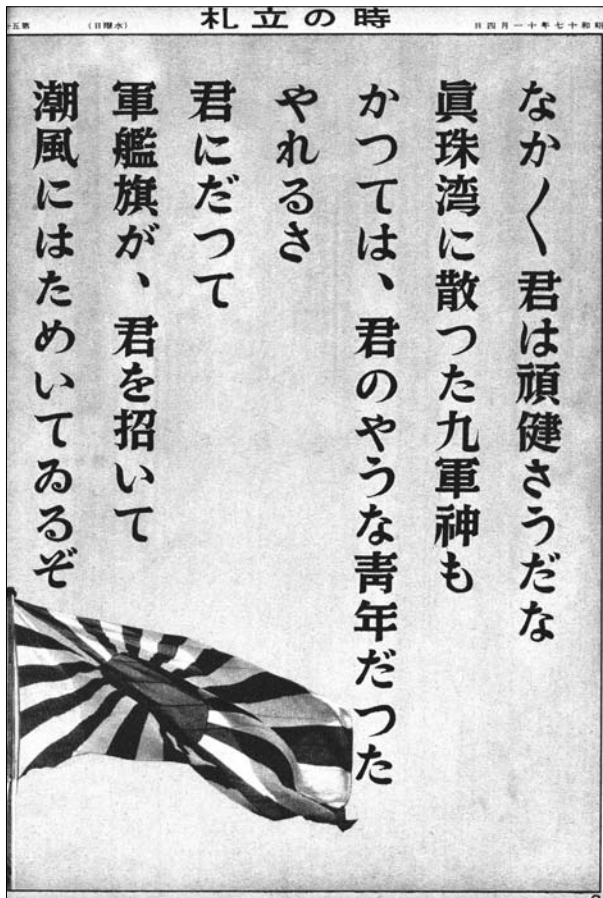 昭和十七年十一月四日
時の立札
(水曜日)
なか〱君は頑健さうだな
眞珠湾に散つた九軍神も
かつては、君のやうな青年だつた
やれるさ
君にだつて
軍艦旗が、君を招いて
潮風にはためいてゐるぞ